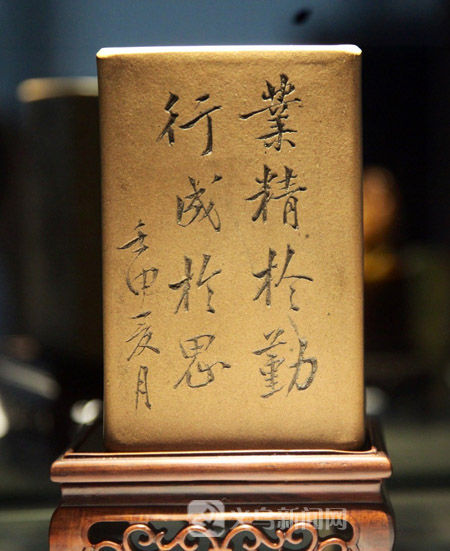 業精於勤
行成於思
壬申夏月
义乌新闻网